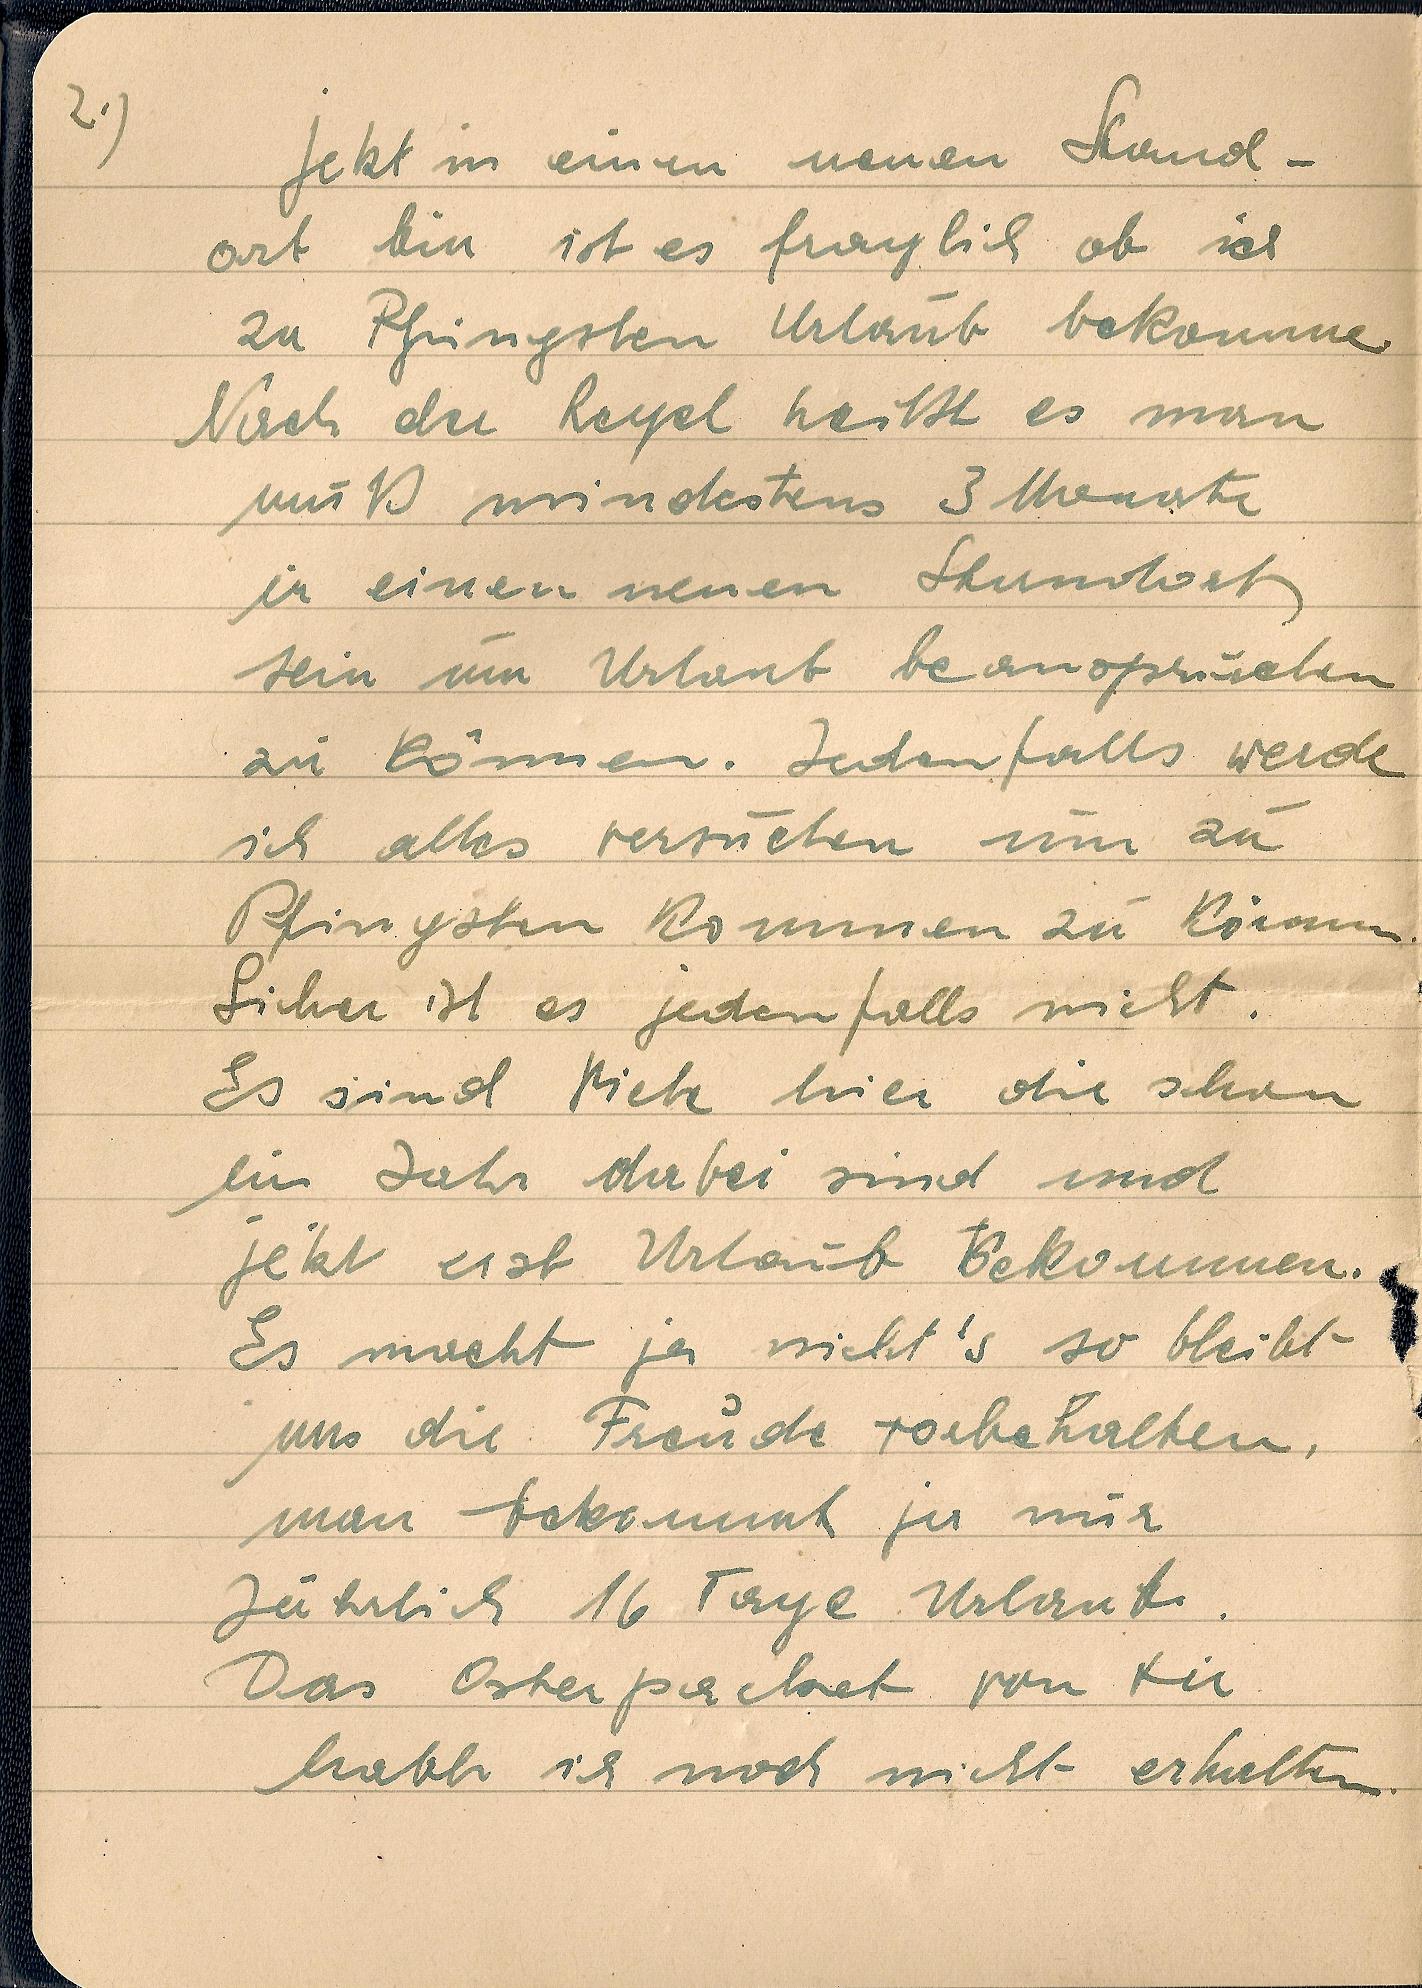 2.)
jetzt in einen neuen Stand-
ort bin ist es fraglich ob ich
zu Pfingsten Urlaub bekomme
Nach der Regel heißt es man
muß mindestens 3 Monate
in einen neuen Standort
sein um Urlaub beanspruchen
zu können. Jedenfalls werde
ich alles versuchen um zu
Pfingsten kommen zu können.
Sicher ist es jedenfalls nicht.
Es sind Viele hier die schon
ein Jahr dabei sind und
jetzt erst Urlaub bekommen.
Es macht ja nicht's so bleibt
uns die Freude vorbehalten,
man bekommt ja nur
Jährlich 16 Tage Urlaub.
Das Osterpacket von dir
habe ich noch nicht erhalten.